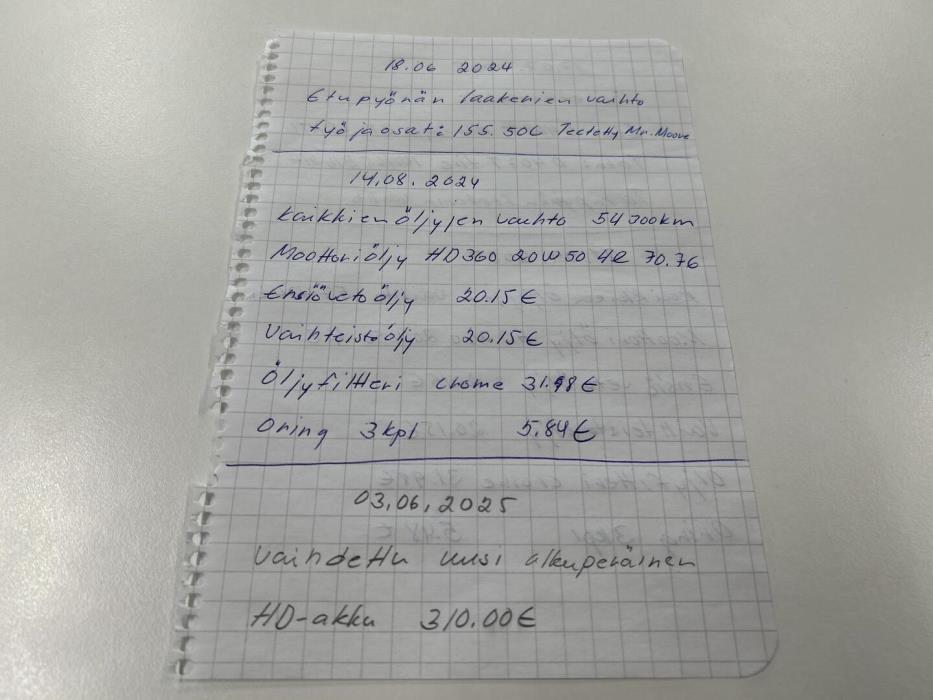 18.06 2024
Etupyönän laakerien vaihto
työ ja osat: 155.50€ Teetetty Mr. Moove
14.08.2024
kaikkien öljyjen vaihto 54300km
Moottoriöljy HD360 20W50 4l 70.76
Ensiöveto öljy 20.15€
Vaihteistoöljy 20.15€
Öljyfiltteri chome 31.98€
Oring 3kpl 5.84€
03,06,2025
vaihdettu uusi alkuperäinen
HD-akku 310.00€